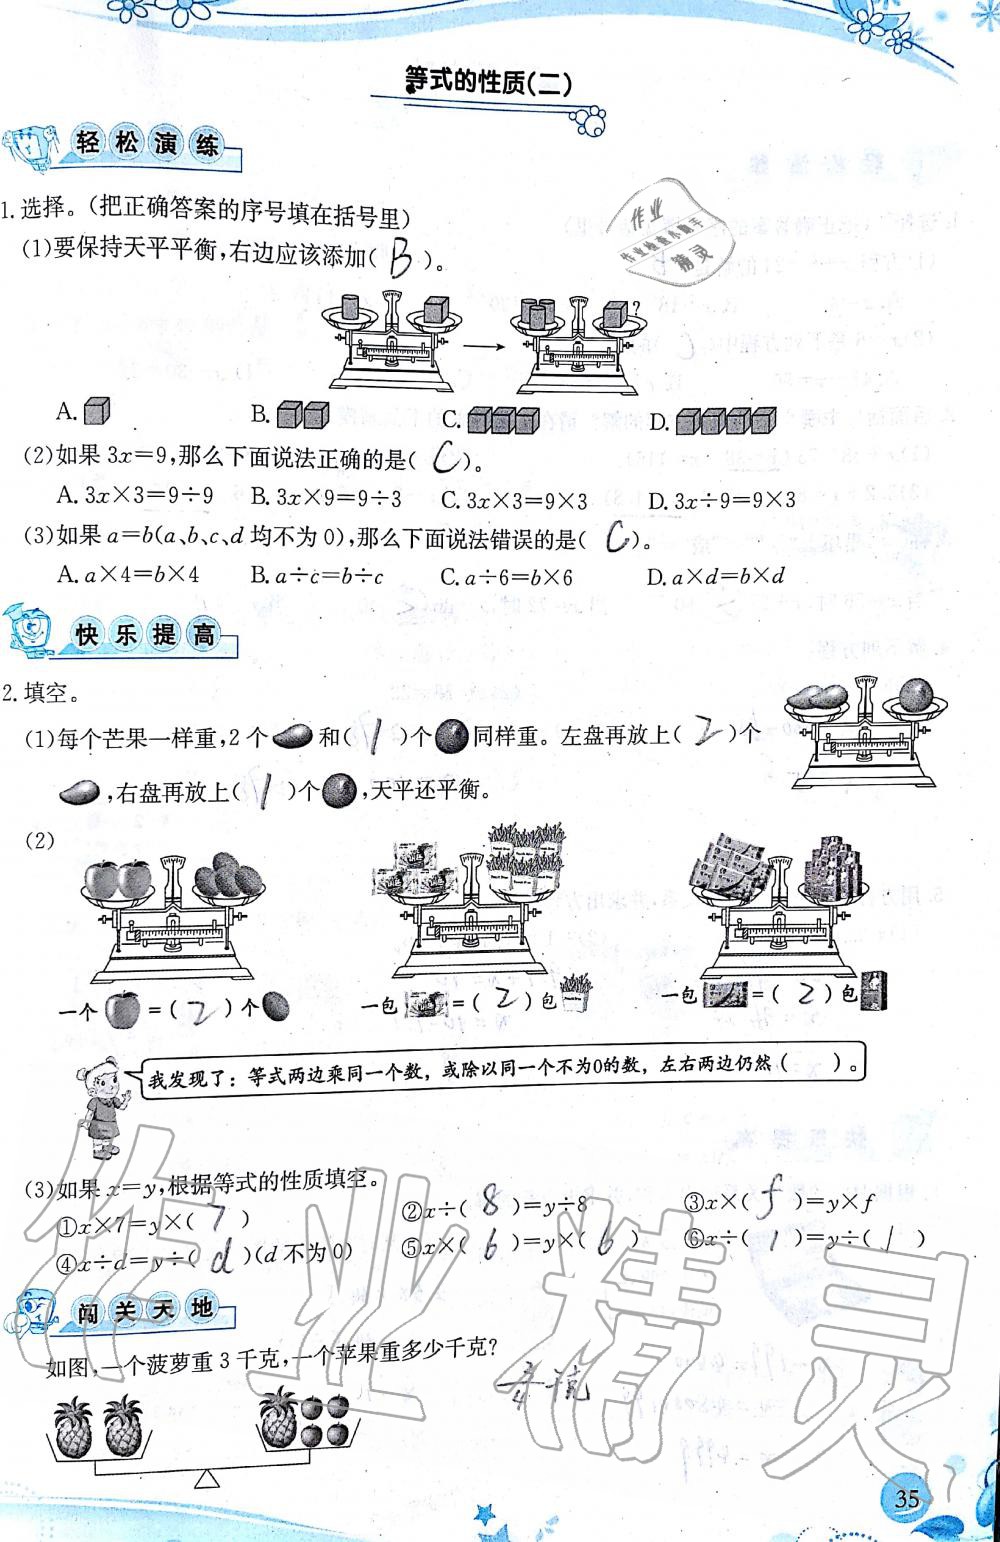 等式的性质(二)
轻松演练
1.选择。(把正确答案的序号填在括号里)
(1)要保持天平平衡,右边应该添加( B )。
?
A. B. C. D.
(2)如果3x=9,那么下面说法正确的是( C )。
A.3x×3=9÷9 B.3x×9=9÷3 C.3x×3=9×3 D.3x÷9=9×3
(3)如果a=b(a、b、c、d均不为0),那么下面说法错误的是( C )。
A.a×4=b×4 B.a÷c=b÷c C.a÷6=b×6 D.a×d=b×d
快乐提高
2.填空。
(1)每个芒果一样重,2个 和( 1 )个 同样重。左盘再放上( 2 )个
,右盘再放上( 1 )个 ,天平还平衡。
(2)
一个 =( 2 )个 一包 =( 2 )包 一包 =( 2 )包
我发现了:等式两边乘同一个数,或除以同一个不为0的数,左右两边仍然( )。
(3)如果x=y,根据等式的性质填空。
①x×7=y×( 7 ) ②x÷( 8 )=y÷8 ③x×( f )=y×f
④x÷d=y÷( d )(d不为0) ⑤x×( 6 )=y×( 6 ) ⑥x÷( 1 )=y÷( 1 )
闯关天地
如图,一个菠萝重3千克,一个苹果重多少千克?
35
作业
作业检查小助手
精灵
作业精灵